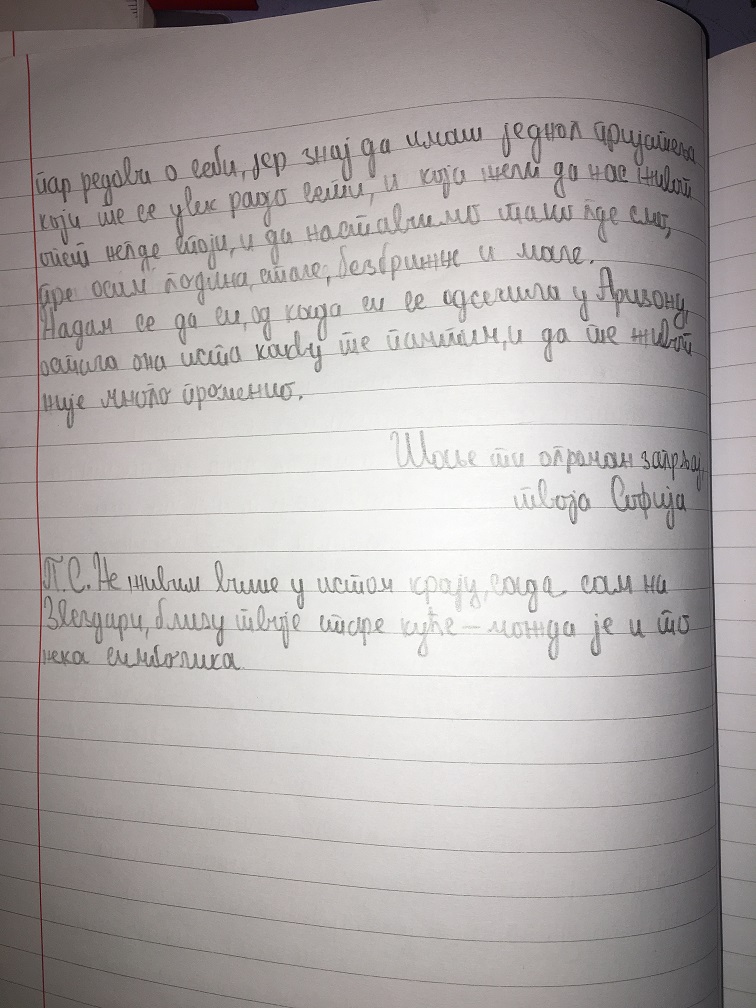 пар редови о себи, јер знај да имаш једног пријатеља
који те се увек радо сети, и која жели да нас живот
опет негде споји, и да наставимо тамо где смо,
пре осам година, стале, безбрижне и мале.
Надам се да си, од када си се одселила у Аризону,
остала она иста какву те памтим, и да те живот
није много променио.
Шаље ти огроман загрљај,
твоја Софија
П.С. Не живим више у истом крају, сада сам на
Звездари, близу твоје старе куће – можда је и то
нека симболика